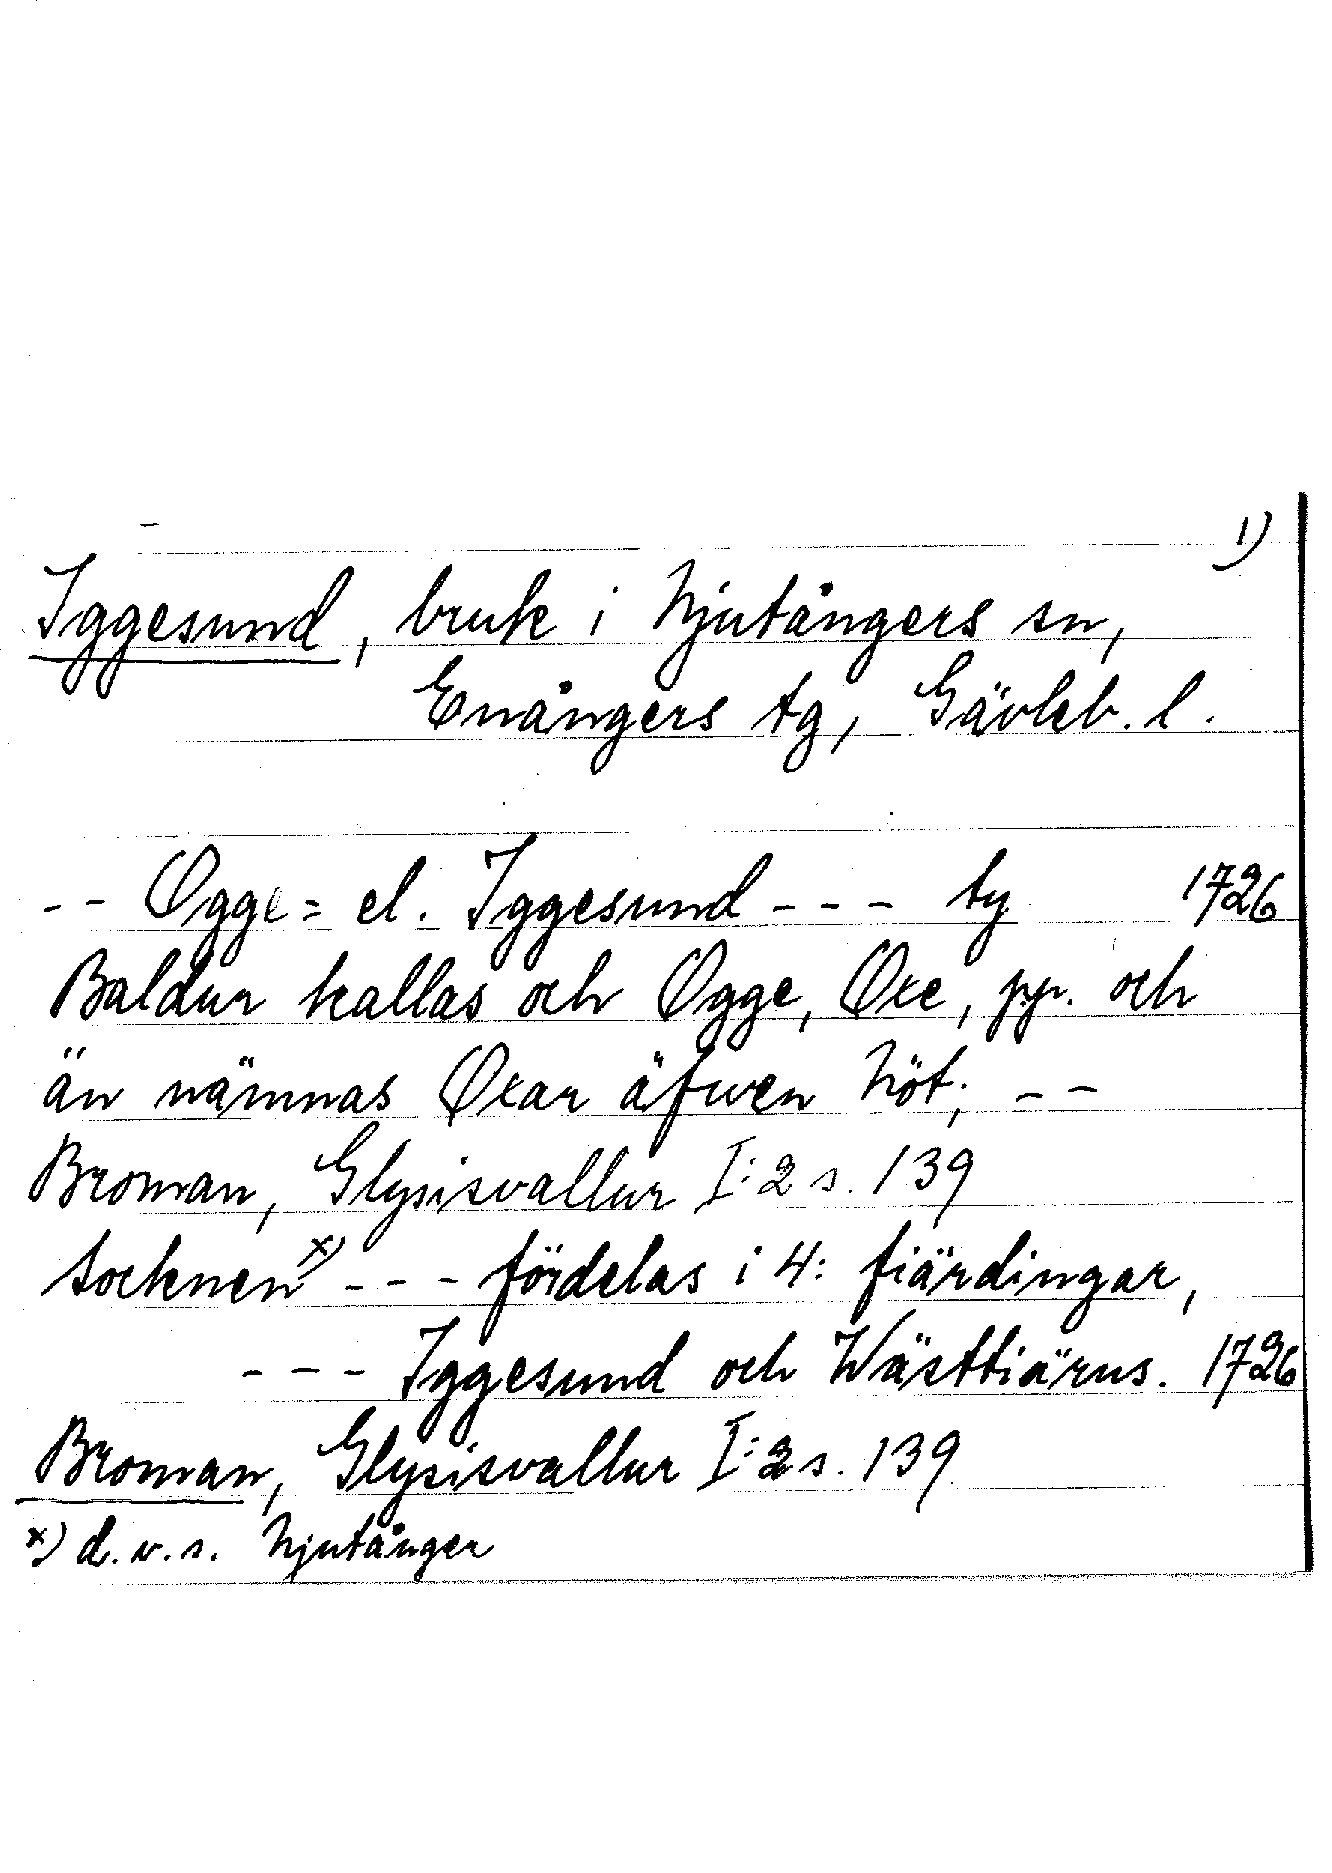 1)
Iggesund, bruk i Njutångers sn,
Enångers tg, Gävleb. l.
-- Ogge= el. Iggesund --- ty 1726
Baldur kallas och Ogge, Oxe, pp. och
än nämnas Oxar äfwen Nöt; --
Broman, Glysisvallur I:2 s. 139
Socknen x) --- fördelas i 4: fiärdingar,
--- Iggesund och Wästtiärus. 1726
Broman, Glysisvallur I:2 s. 139
x) d.v.s. Njutånger